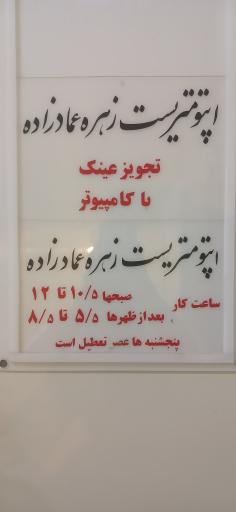 اپتومتریست زهره عمادزاده
تجویز عینک
با کامپیوتر
اپتومتریست زهره عمادزاده
ساعت کار
صبحها ۱۰/۵ تا ۱۲
بعدازظهرها ۵/۵ تا ۸/۵
پنجشنبه ها عصر تعطیل است